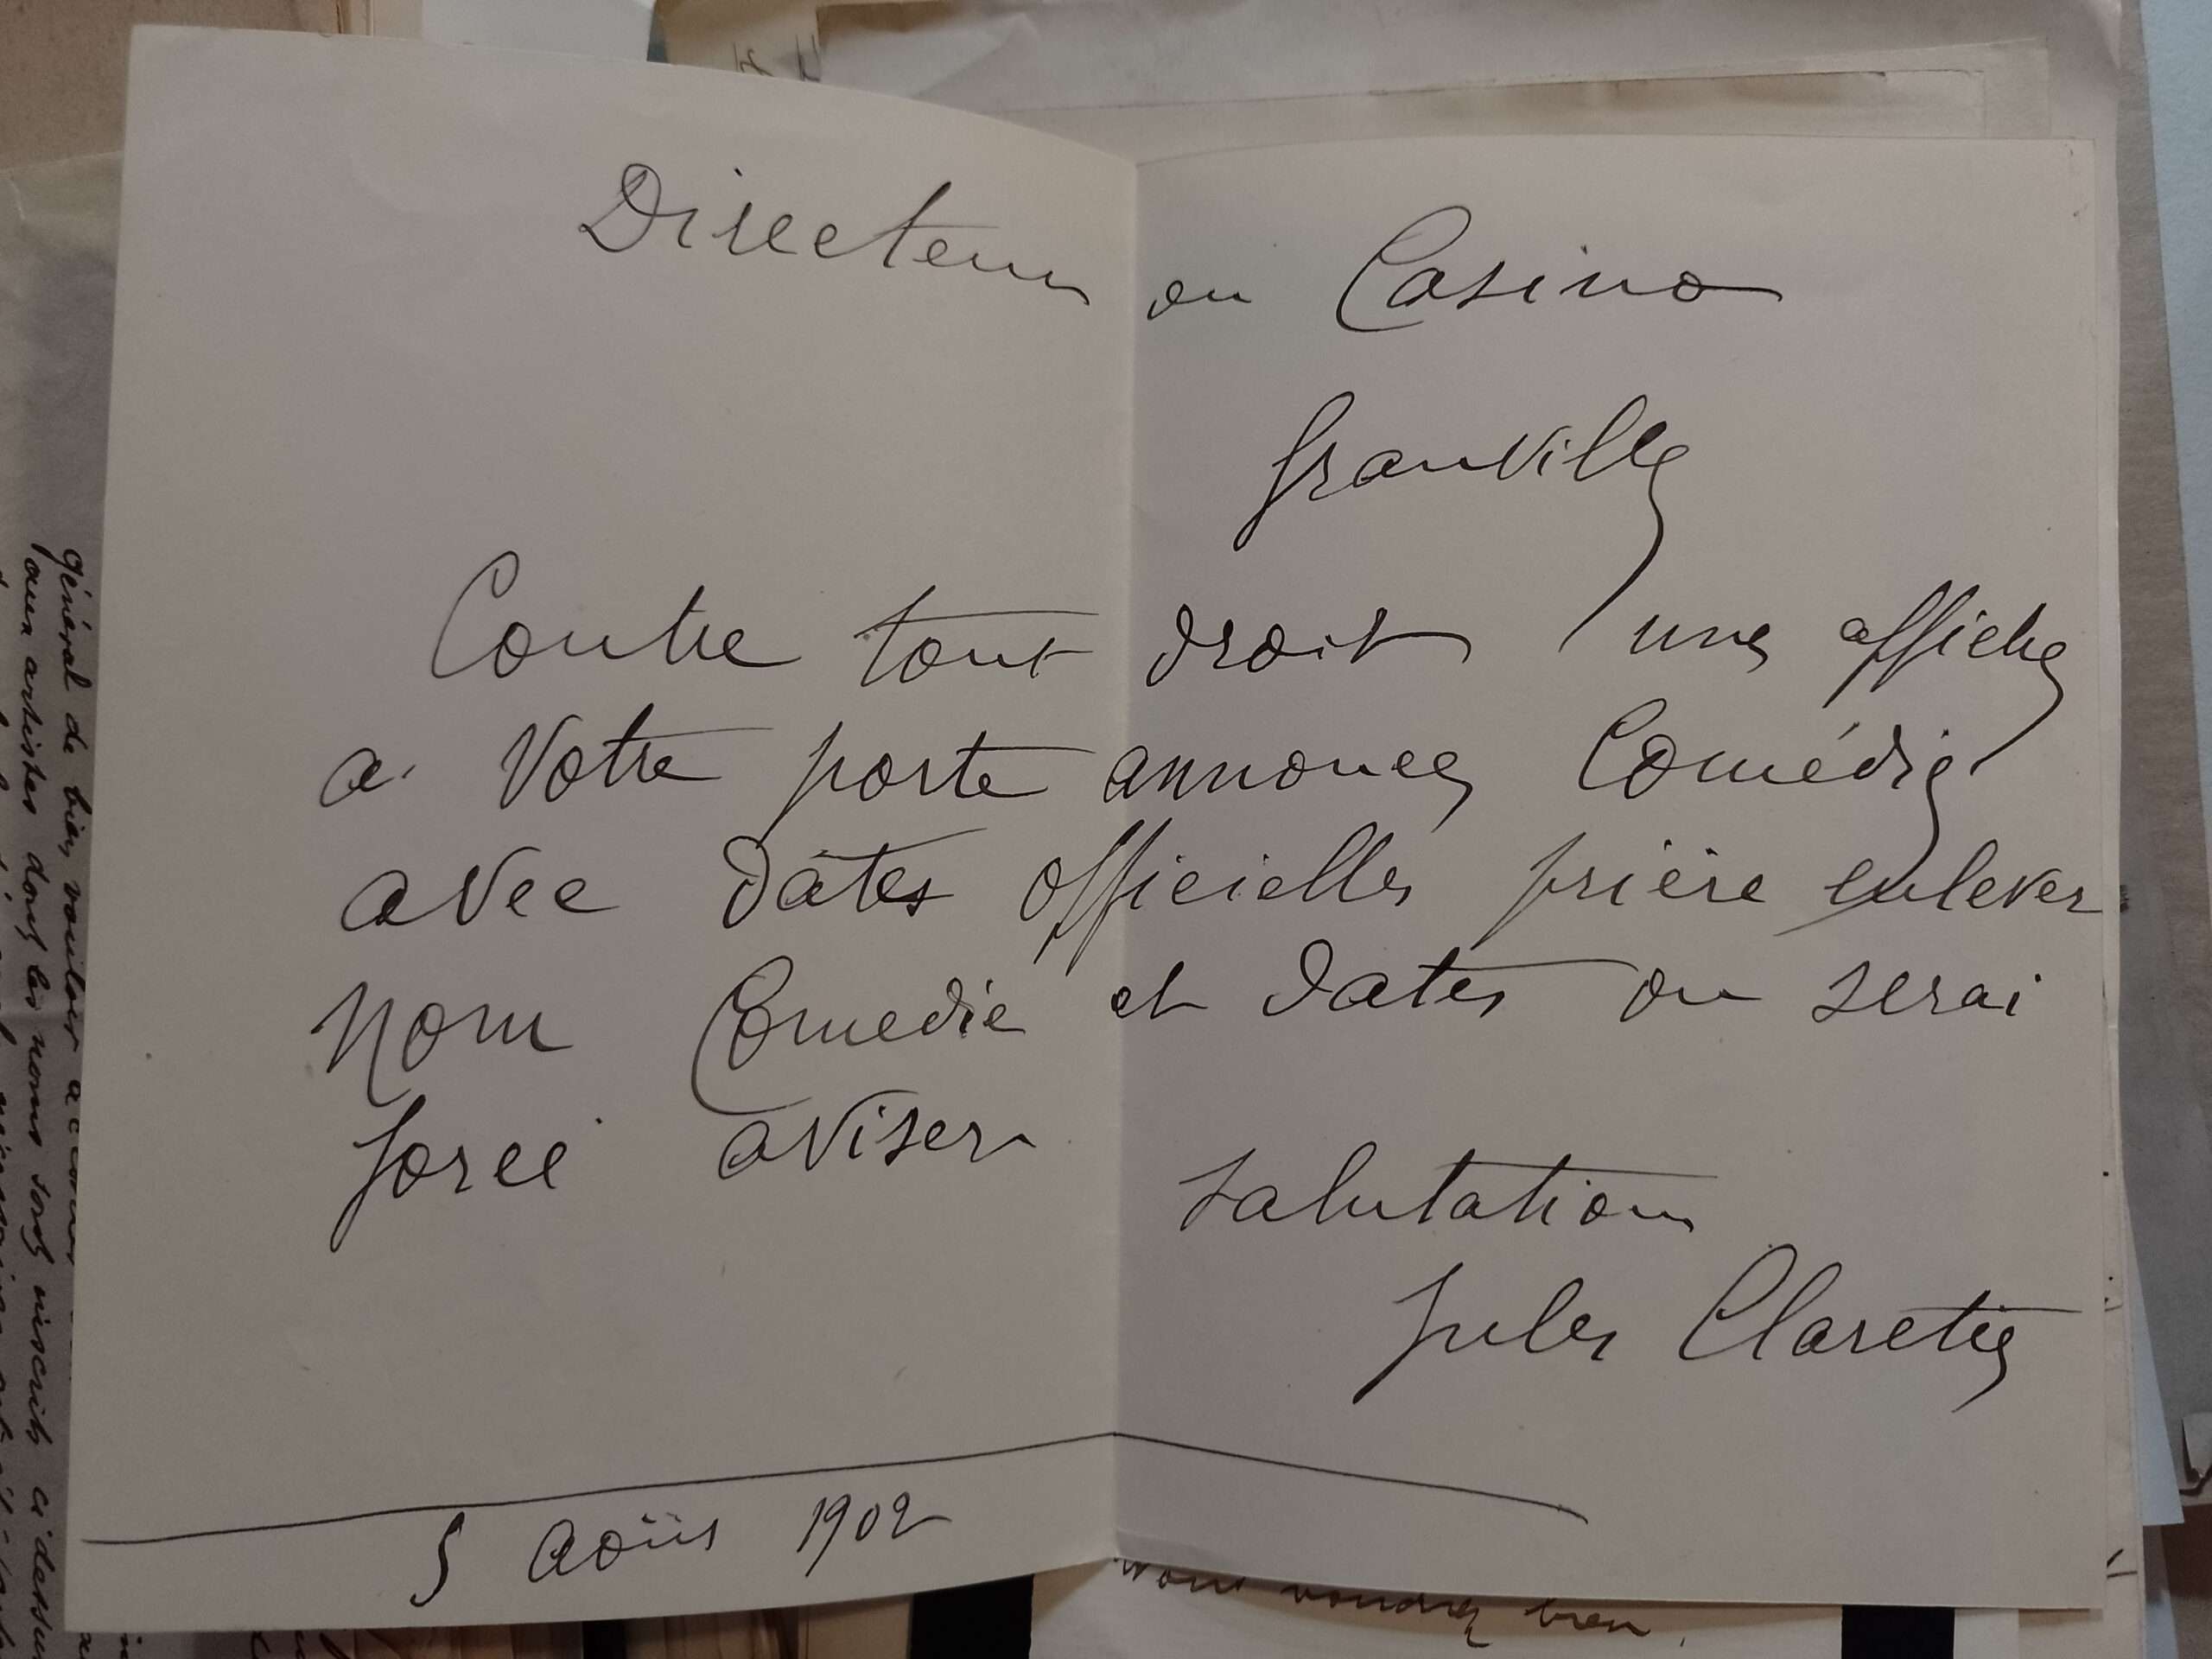 Directeur du Casino
Granville
Contre tout droit une affiche
a votre porte annonce Comédie
avec dates officielles prière enlever
nom Comedie et dates ou serai
forcé aviser
salutations
Jules Claretie
5 Août 1902
général de bien vouloir
aux artistes dont les noms sont inscrits ci dessus
vous voudrez bien